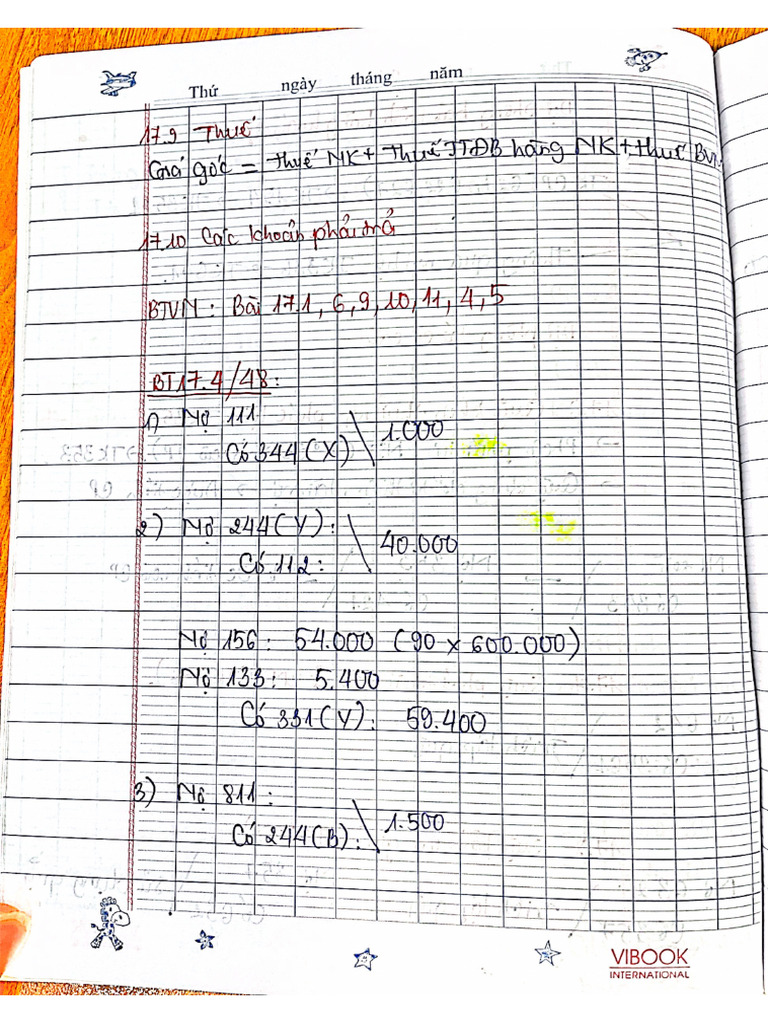 Thứ ngày tháng năm
17.9 Thuế
Giá gốc = Thuế NK + Thuế TTĐB hàng NK + thuế BV
17.10 Các khoản phải trả
BTVN : Bài 17.1, 6, 9, 10, 11, 4, 5
BT17.4/48 :
1) Nợ 111
Có 344 (X) \ 1.000
2) Nợ 244 (Y) :
Có 112 : \ 40.000
Nợ 156 : 54.000 (90 x 600.000)
Nợ 133 : 5.400
Có 331 (Y) : 59.400
3) Nợ 811 :
Có 244 (B) : \ 1.500
VIBOOK
INTERNATIONAL